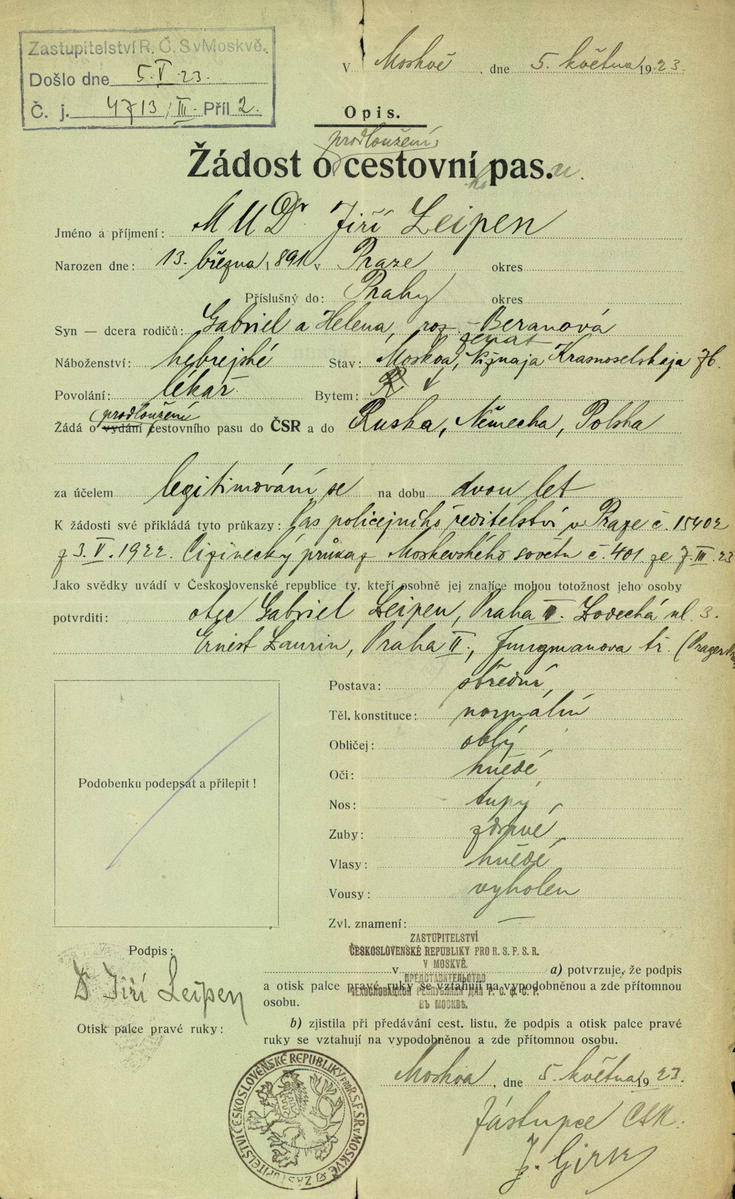 Zastupitelství R. Č. S v Moskvě.
Došlo dne 5. V. 23.
Č. j. 4713/III. Příl 2.
V Moskvě, dne 5. května 1923.
Opis.
prodloužení
Žádost o cestovního pasu.
Jméno a příjmení: MUDr Jiří Leipen
Narozen dne: 13. března, 891 v Praze okres
Příslušný do: Prahy okres
Syn — dcera rodičů: Gabriel a Helena, roz. Beranová
Náboženství: hebrejské Stav: ženat
Moskva, Nižnaja Krasnoselskaja 76.
Povolání: lékař Bytem:
prodloužení
Žádá o vydání cestovního pasu do ČSR a do Ruska, Německa, Polska
za účelem legitimování se na dobu dvou let
K žádosti své přikládá tyto průkazy: Pas policejního ředitelství v Praze č. 15402
z 3. V. 1922. průkaz Moskevského sovětu č. 401 ze 7. III. 23
Jako svědky uvádí v Československé republice ty, kteří osobně jej znajíce mohou totožnost jeho osoby
potvrditi: otec Gabriel Leipen, Praha II. ul. 3.
Ernest Laurin, Praha II., Jungmanova tř.
Podobenku podepsat a přilepit!
Postava: střední
Těl. konstituce: normální
Obličej: oblý
Oči: hnědé
Nos: tupý
Zuby: zdravé
Vlasy: hnědé
Vousy: vyholen
Zvl. znamení: —
Podpis:
Dr Jiří Leipen
Otisk palce pravé ruky:
ZASTUPITELSTVÍ
ČESKOSLOVENSKÉ REPUBLIKY PRO R. S. F. S. R.
V MOSKVĚ.
ПРЕДСТАВИТЕЛЬСТВО
ЧЕХОСЛОВАЦКОЙ РЕСПУБЛИКИ ДЛЯ Р. С. Ф. С. Р.
ВЪ МОСКВѢ.
v a) potvrzuje, že podpis
a otisk palce pravé ruky se vztahují na vypodobněnou a zde přítomnou
osobu.
b) zjistila při předávání cest. listu, že podpis a otisk palce pravé
ruky se vztahují na vypodobněnou a zde přítomnou osobu.
Moskva, dne 5. května 1923.
Zástupce ČSR:
J. Girsa
ZASTUPITELSTVÍ ČESKOSLOVENSKÉ REPUBLIKY PRO R.S.F.S.R. V MOSKVĚ